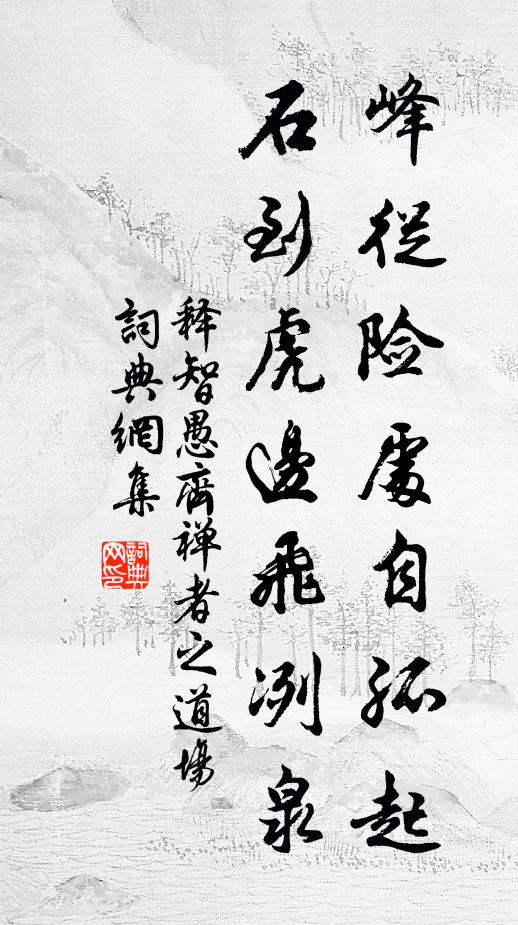 峰從险處自孤起
石到虎邊飛冽泉
释智愚齊禅者之道場
詞典網集
詞典
网印